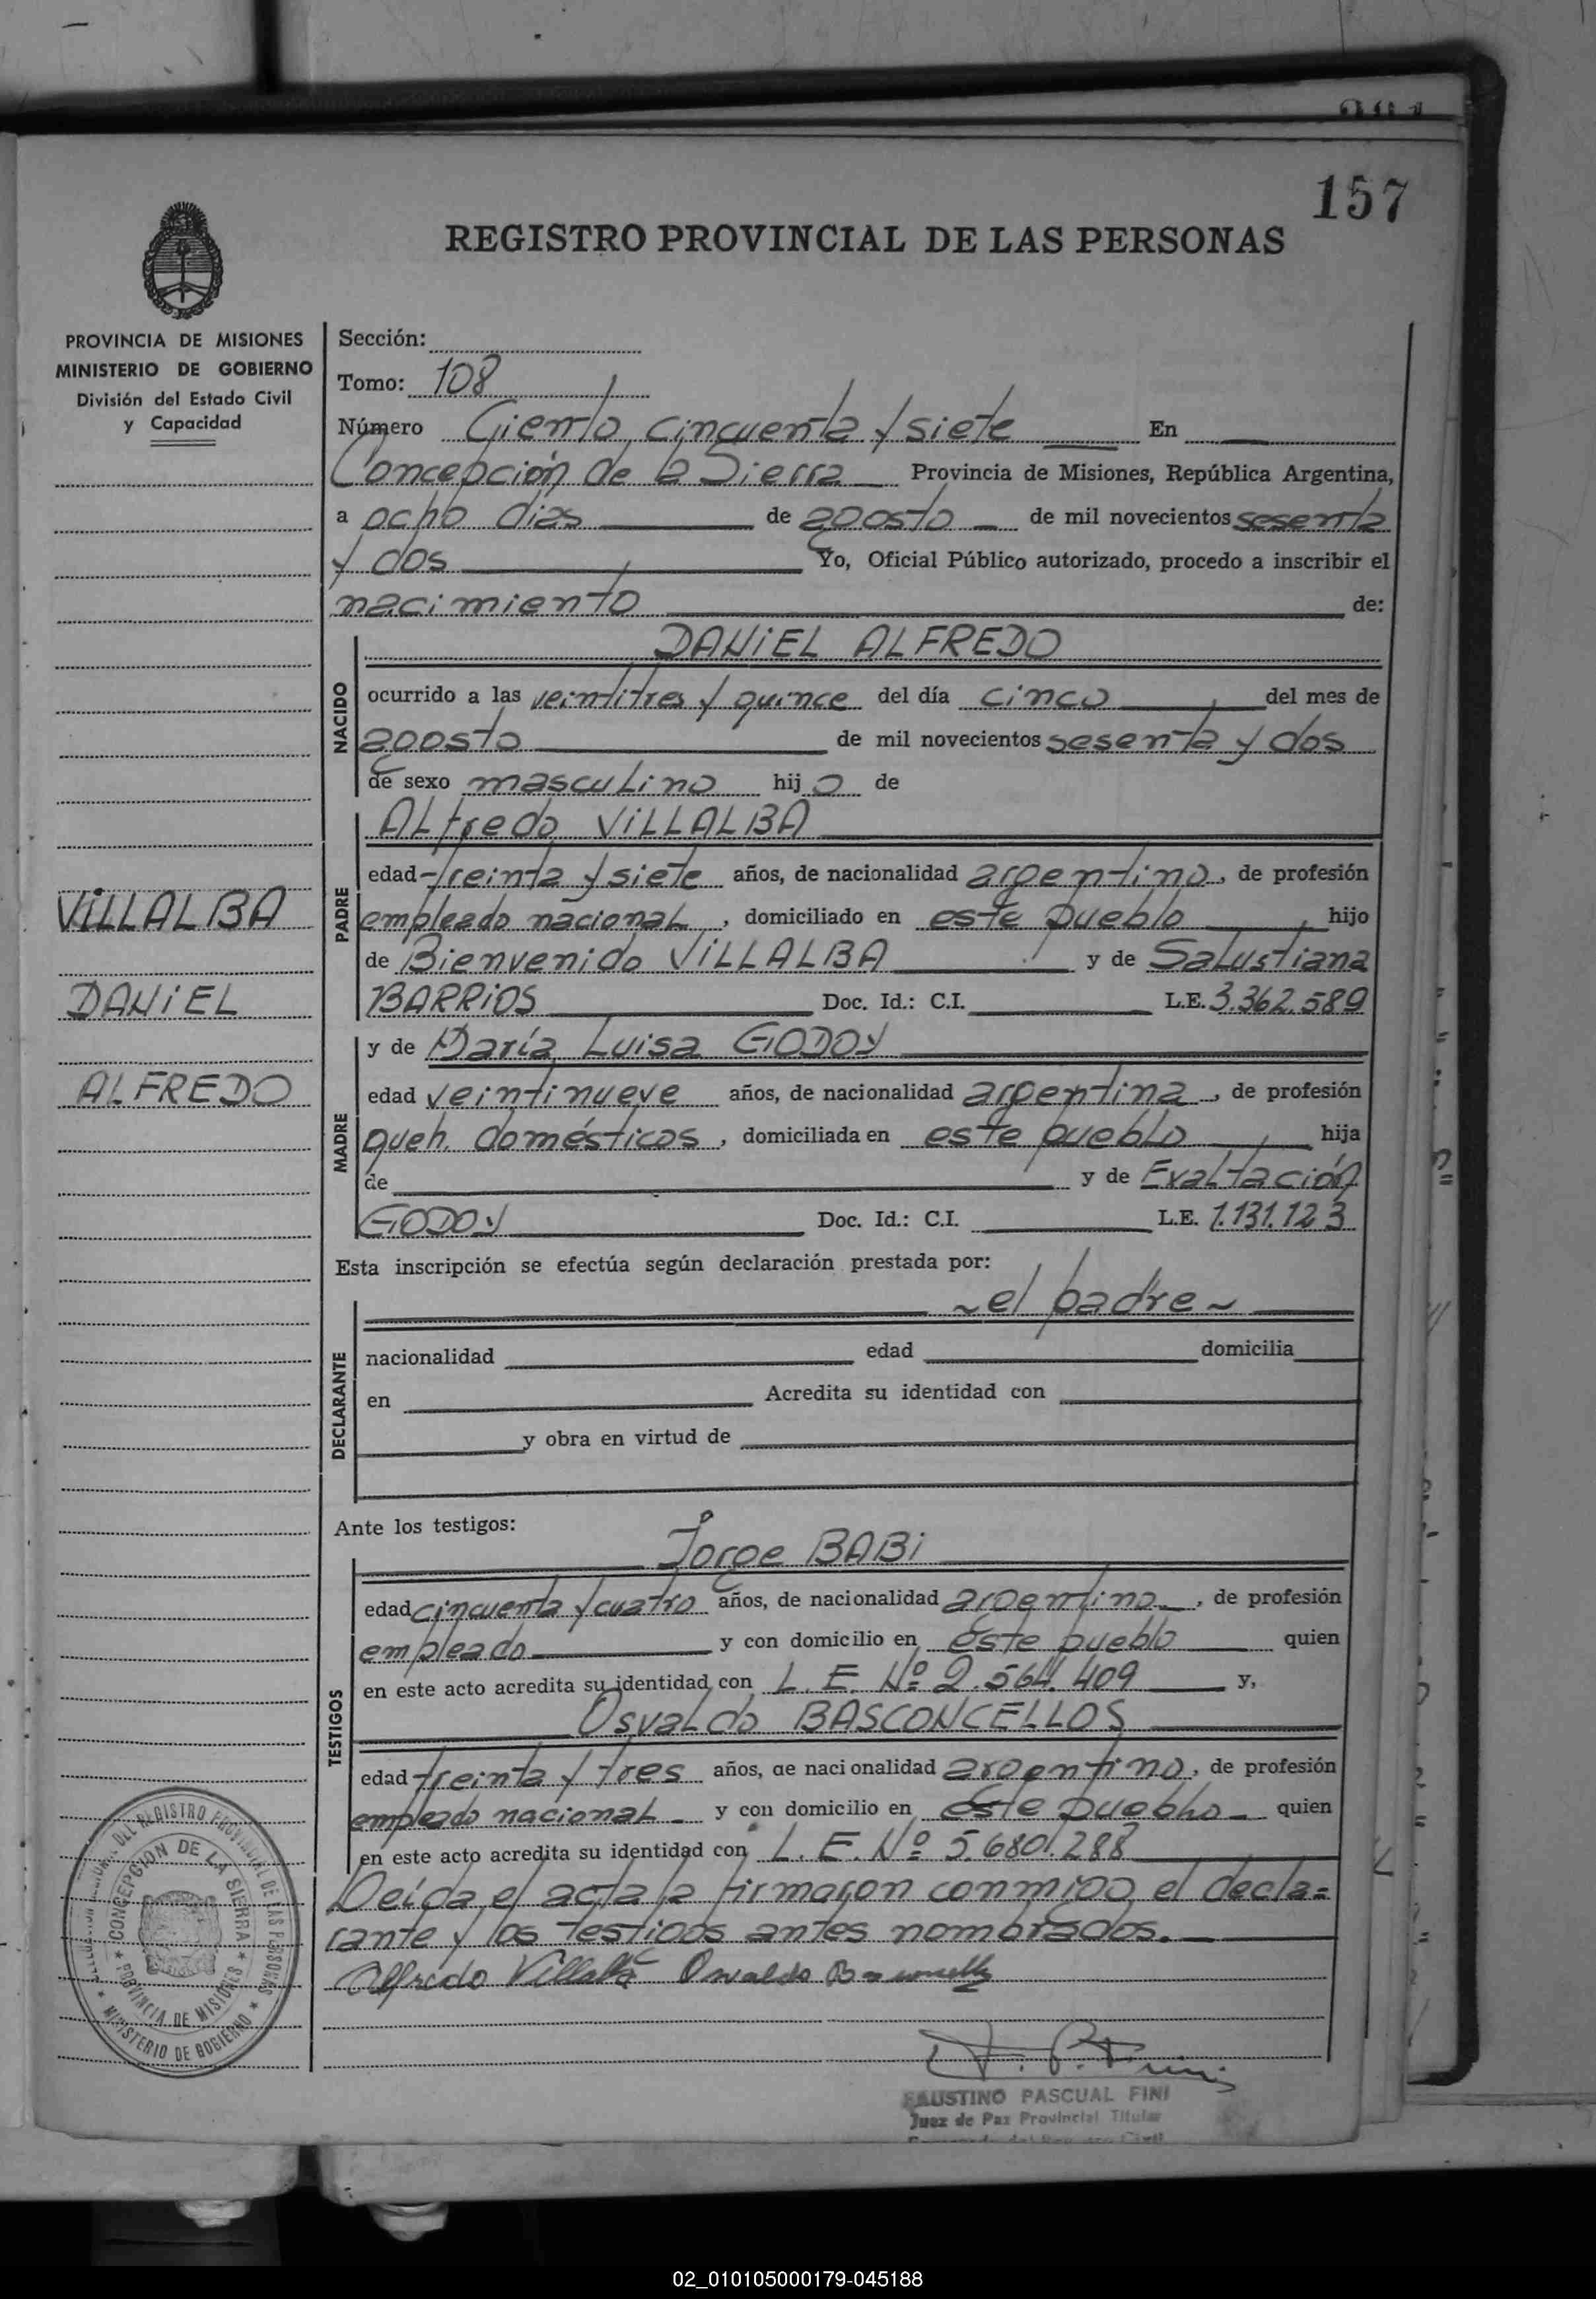 157
REGISTRO PROVINCIAL DE LAS PERSONAS
PROVINCIA DE MISIONES
MINISTERIO DE GOBIERNO
División del Estado Civil
y Capacidad
VILLALBA
DANIEL
ALFREDO
Sección:
Tomo: 108
Número Ciento cincuenta y siete En
Concepción de la Sierra Provincia de Misiones, República Argentina,
a ocho dias de agosto de mil novecientos sesenta
y dos Yo, Oficial Público autorizado, procedo a inscribir el
nacimiento de:
NACIDO
DANIEL ALFREDO
ocurrido a las veintitres y quince del día cinco del mes de
agosto de mil novecientos sesenta y dos
de sexo masculino hijo de
PADRE
Alfredo VILLALBA
edad treinta y siete años, de nacionalidad argentino, de profesión
empleado nacional, domiciliado en este pueblo hijo
de Bienvenido VILLALBA y de Salustiana
BARRIOS Doc. Id.: C.I. L.E. 3.362.589
MADRE
y de María Luisa GODOY
edad veintinueve años, de nacionalidad argentina, de profesión
queh. domésticos, domiciliada en este pueblo hija
de y de Exaltación
GODOY Doc. Id.: C.I. L.E. 1.131.123
Esta inscripción se efectúa según declaración prestada por:
DECLARANTE
~ el padre ~
nacionalidad edad domicilia
en Acredita su identidad con
y obra en virtud de
Ante los testigos:
TESTIGOS
Jorge BABI
edad cincuenta y cuatro años, de nacionalidad argentino, de profesión
empleado y con domicilio en este pueblo quien
en este acto acredita su identidad con L. E. Nº 2.564.409 y,
Osvaldo BASCONCELLOS
edad treinta y tres años, de nacionalidad argentino, de profesión
empleado nacional y con domicilio en este pueblo quien
en este acto acredita su identidad con L. E. Nº 5.680.288
Leída el acta la firmaron conmigo el decla=
rante y los testigos antes nombrados.
Alfredo Villalba Osvaldo
REGISTRO PROVINCIAL DE LAS PERSONAS
MINISTERIO DE GOBIERNO
CONCEPCION DE LA SIERRA
PROVINCIA DE MISIONES
FAUSTINO PASCUAL FINI
Juez de Paz Provincial Titular
02_010105000179-045188